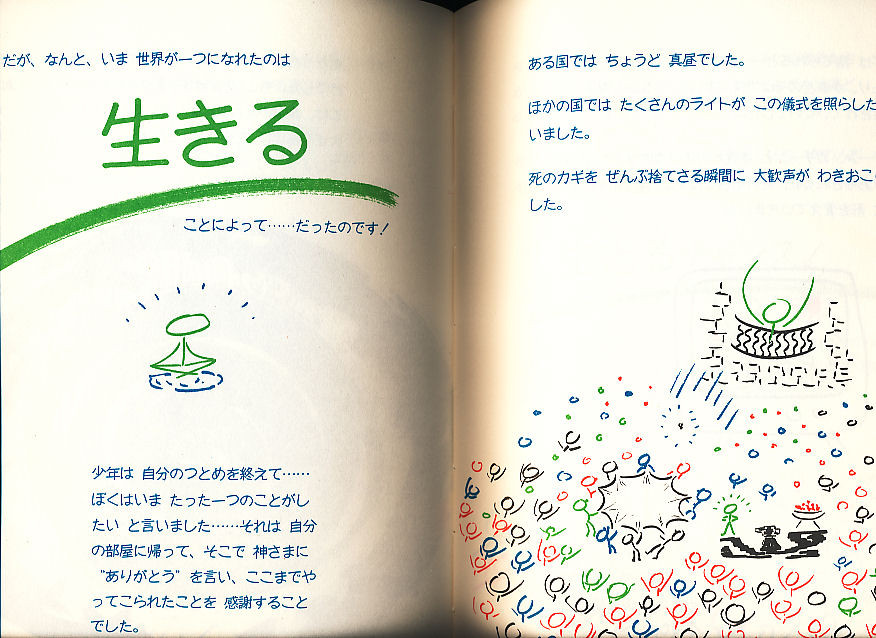 だが、なんと、いま 世界が一つになれたのは
生きる
ことによって……だったのです!
少年は 自分のつとめを終えて……
ぼくはいま たった一つのことがし
たい と言いました……それは 自分
の部屋に帰って、そこで 神さまに
"ありがとう" を言い、ここまでや
ってこられたことを 感謝すること
でした。
ある国では ちょうど 真昼でした。
ほかの国では たくさんのライトが この儀式を照らした
いました。
死のカギを ぜんぶ捨てさる瞬間に 大歓声が わきおこ
した。